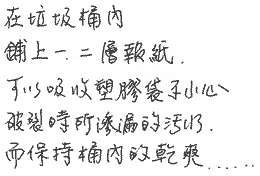 在垃圾桶內
鋪上一.二層報紙.
可以吸收塑膠袋不小心
破裂時所滲漏的污水.
而保持桶內的乾爽......